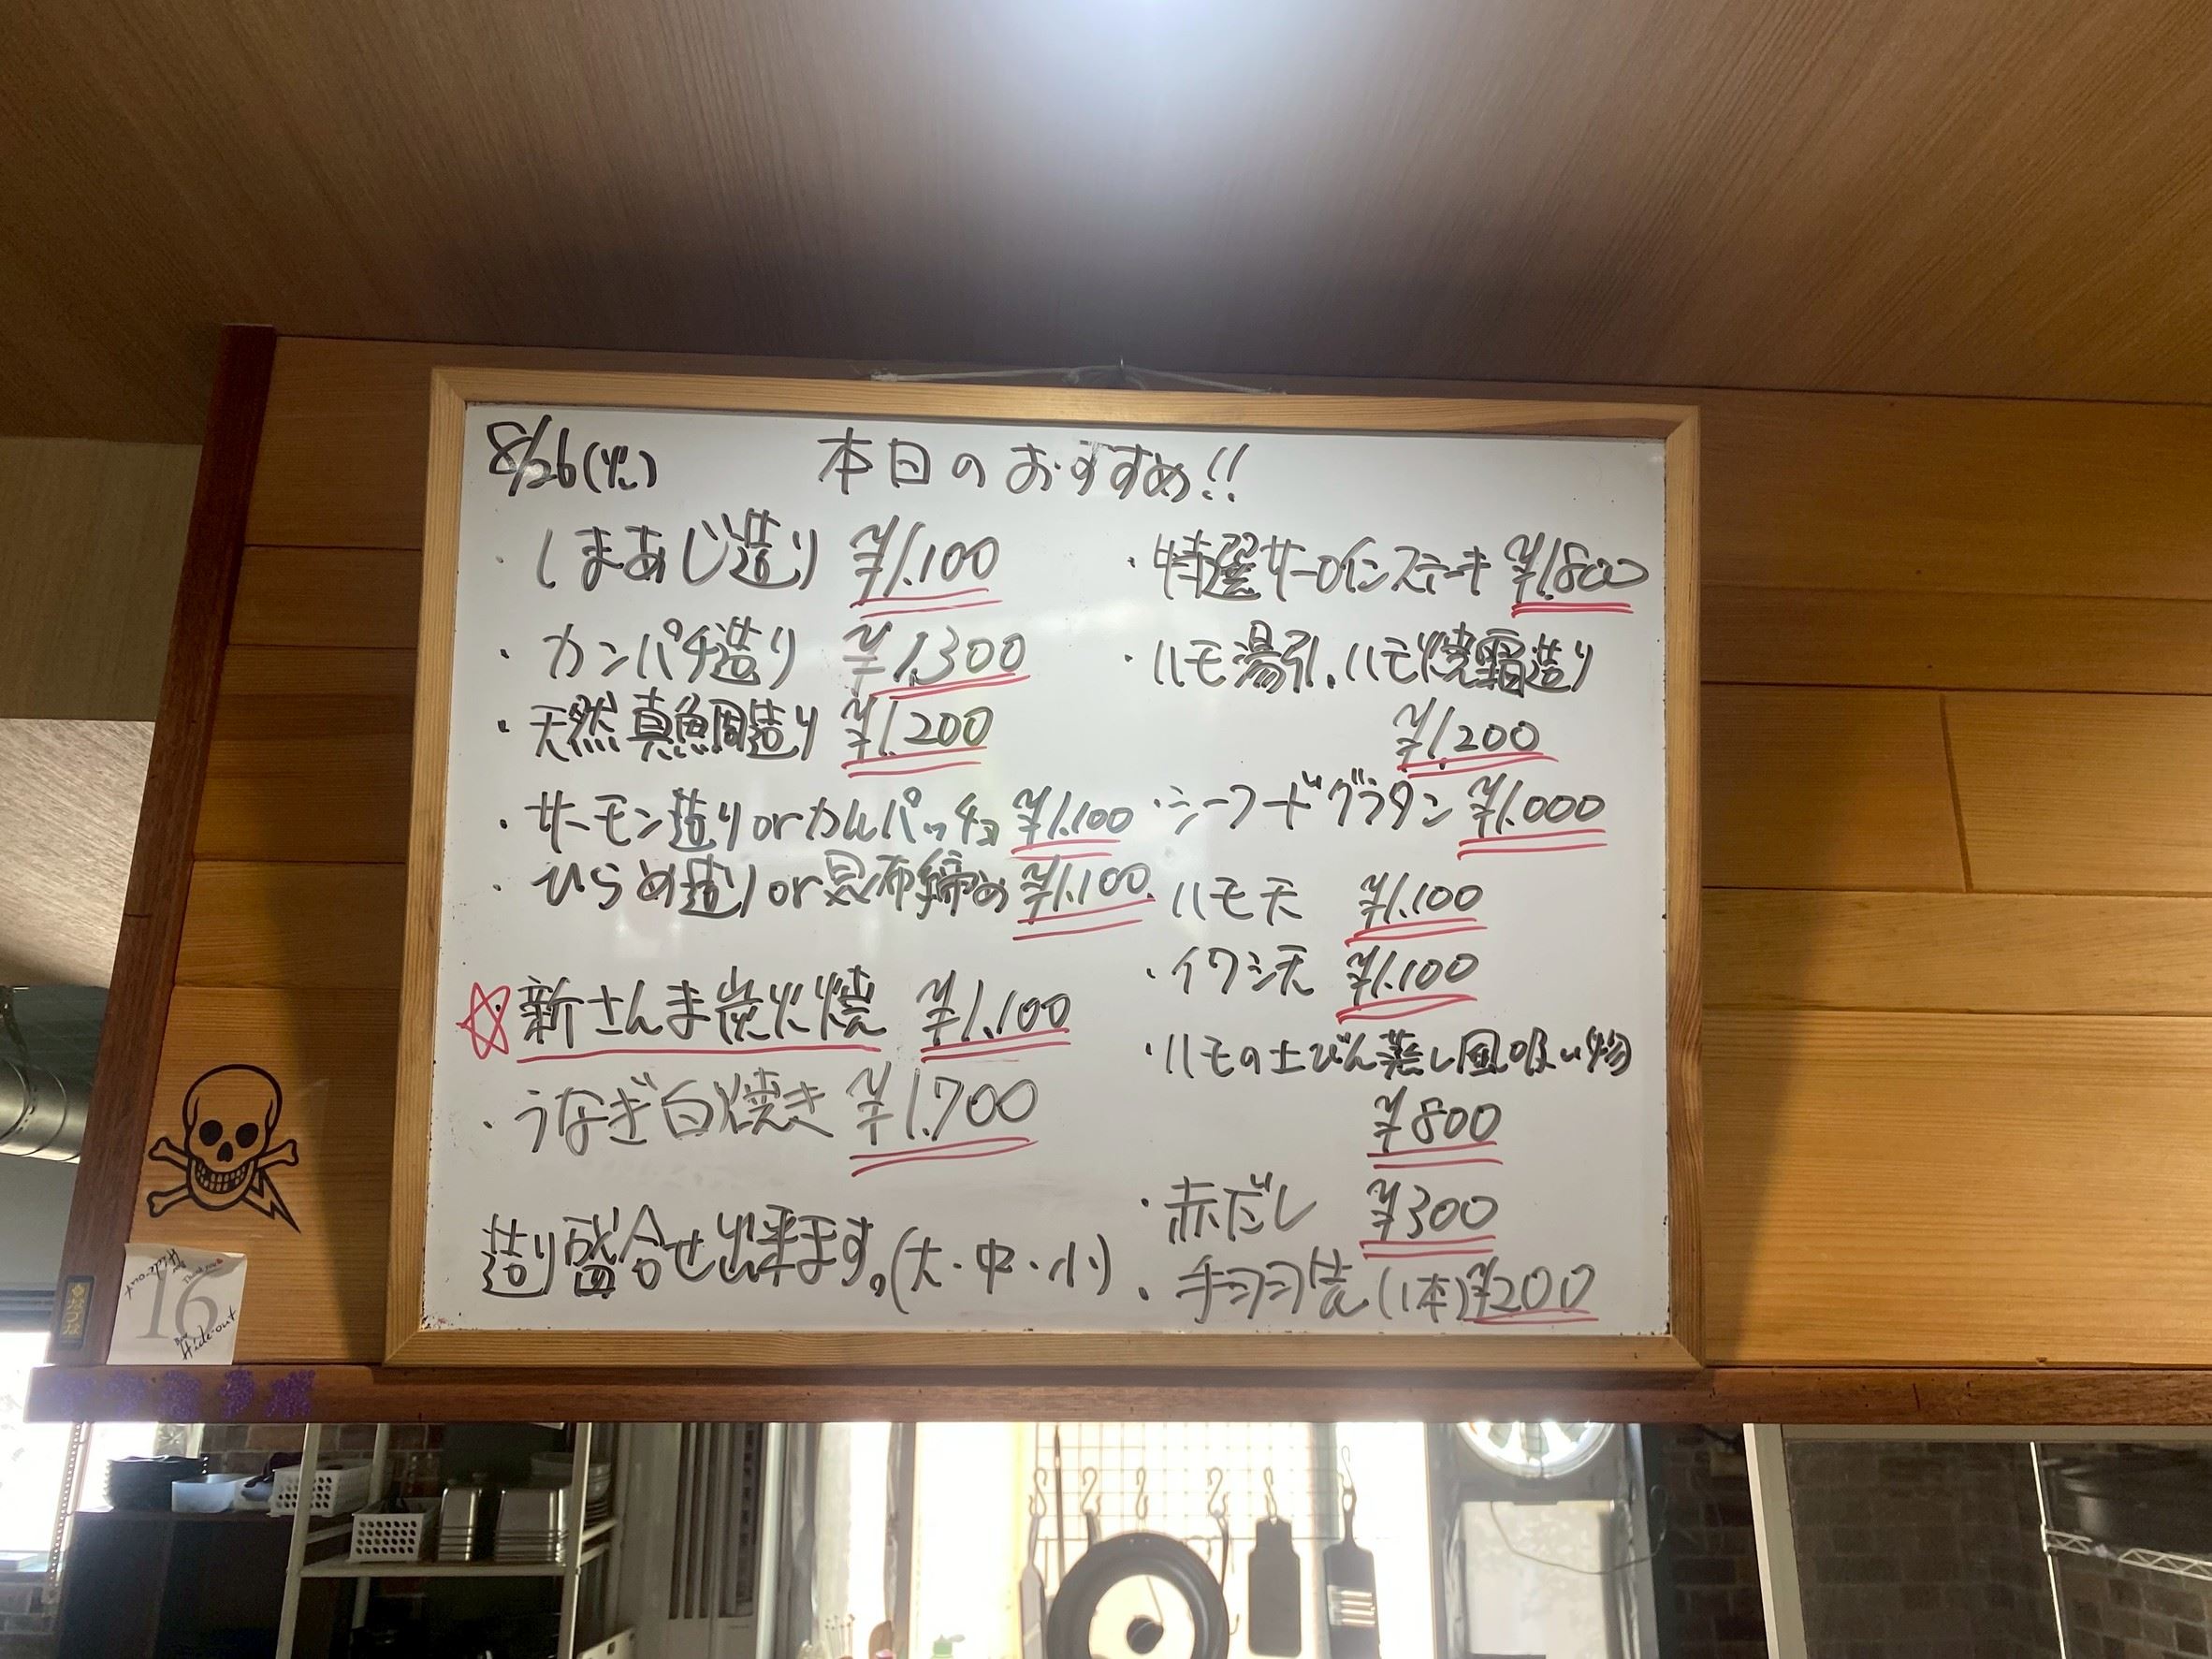 8/26(火)
本日のおすすめ!!
・しまあじ造り ¥1,100
・カンパチ造り ¥1,300
・天然真鯛造り ¥1,200
・サーモン造りorカルパッチョ ¥1,100
・ひらめ造りor昆布締め ¥1,100
☆新さんま炭火焼 ¥1,100
・うなぎ白焼き ¥1,700
造り盛合せ出来ます。(大・中・小)
・特選サーロインステーキ ¥1,800
・ハモ湯引、ハモ焼霜造り
¥1,200
・シーフードグラタン ¥1,000
・ハモ天 ¥1,100
・イワシ天 ¥1,100
・ハモの土びん蒸し風吸い物
¥800
・赤だし ¥300
・手羽焼(1本)¥200
16
Hide-out